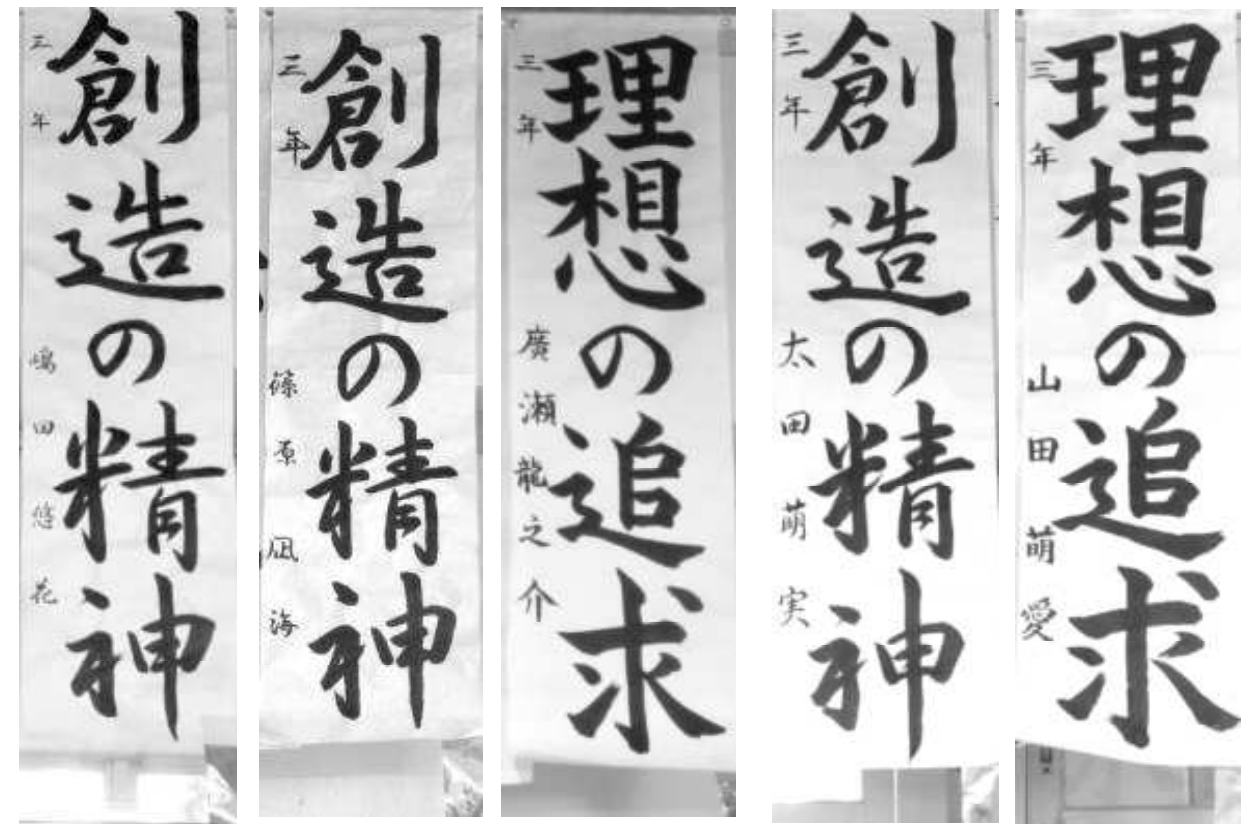 創造の精神
三年 嶋田悠花
創造の精神
三年 篠原凪海
理想の追求
三年 廣瀬龍之介
創造の精神
三年 太田萌実
理想の追求
三年 山田萌愛